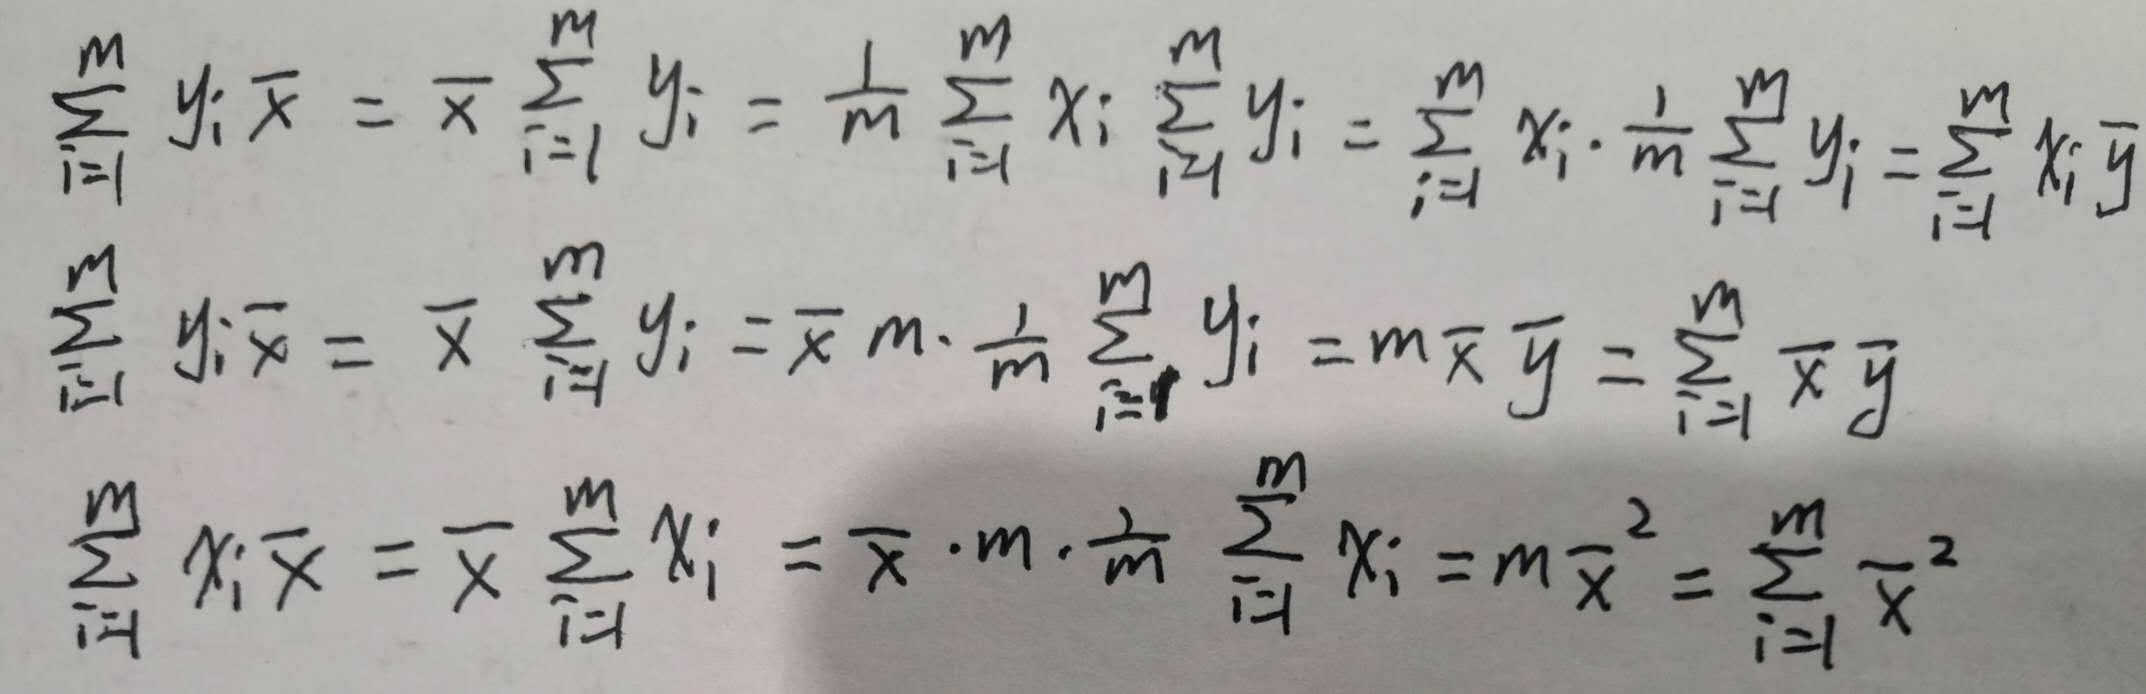 $\sum_{i=1}^{m} y_i \bar{x} = \bar{x} \sum_{i=1}^{m} y_i = \frac{1}{m} \sum_{i=1}^{m} x_i \sum_{i=1}^{m} y_i = \sum_{i=1}^{m} x_i \cdot \frac{1}{m} \sum_{i=1}^{m} y_i = \sum_{i=1}^{m} x_i \bar{y}$
$\sum_{i=1}^{m} y_i \bar{x} = \bar{x} \sum_{i=1}^{m} y_i = \bar{x} m \cdot \frac{1}{m} \sum_{i=1}^{m} y_i = m \bar{x} \bar{y} = \sum_{i=1}^{m} \bar{x} \bar{y}$
$\sum_{i=1}^{m} x_i \bar{x} = \bar{x} \sum_{i=1}^{m} x_i = \bar{x} \cdot m \cdot \frac{1}{m} \sum_{i=1}^{m} x_i = m \bar{x}^2 = \sum_{i=1}^{m} \bar{x}^2$